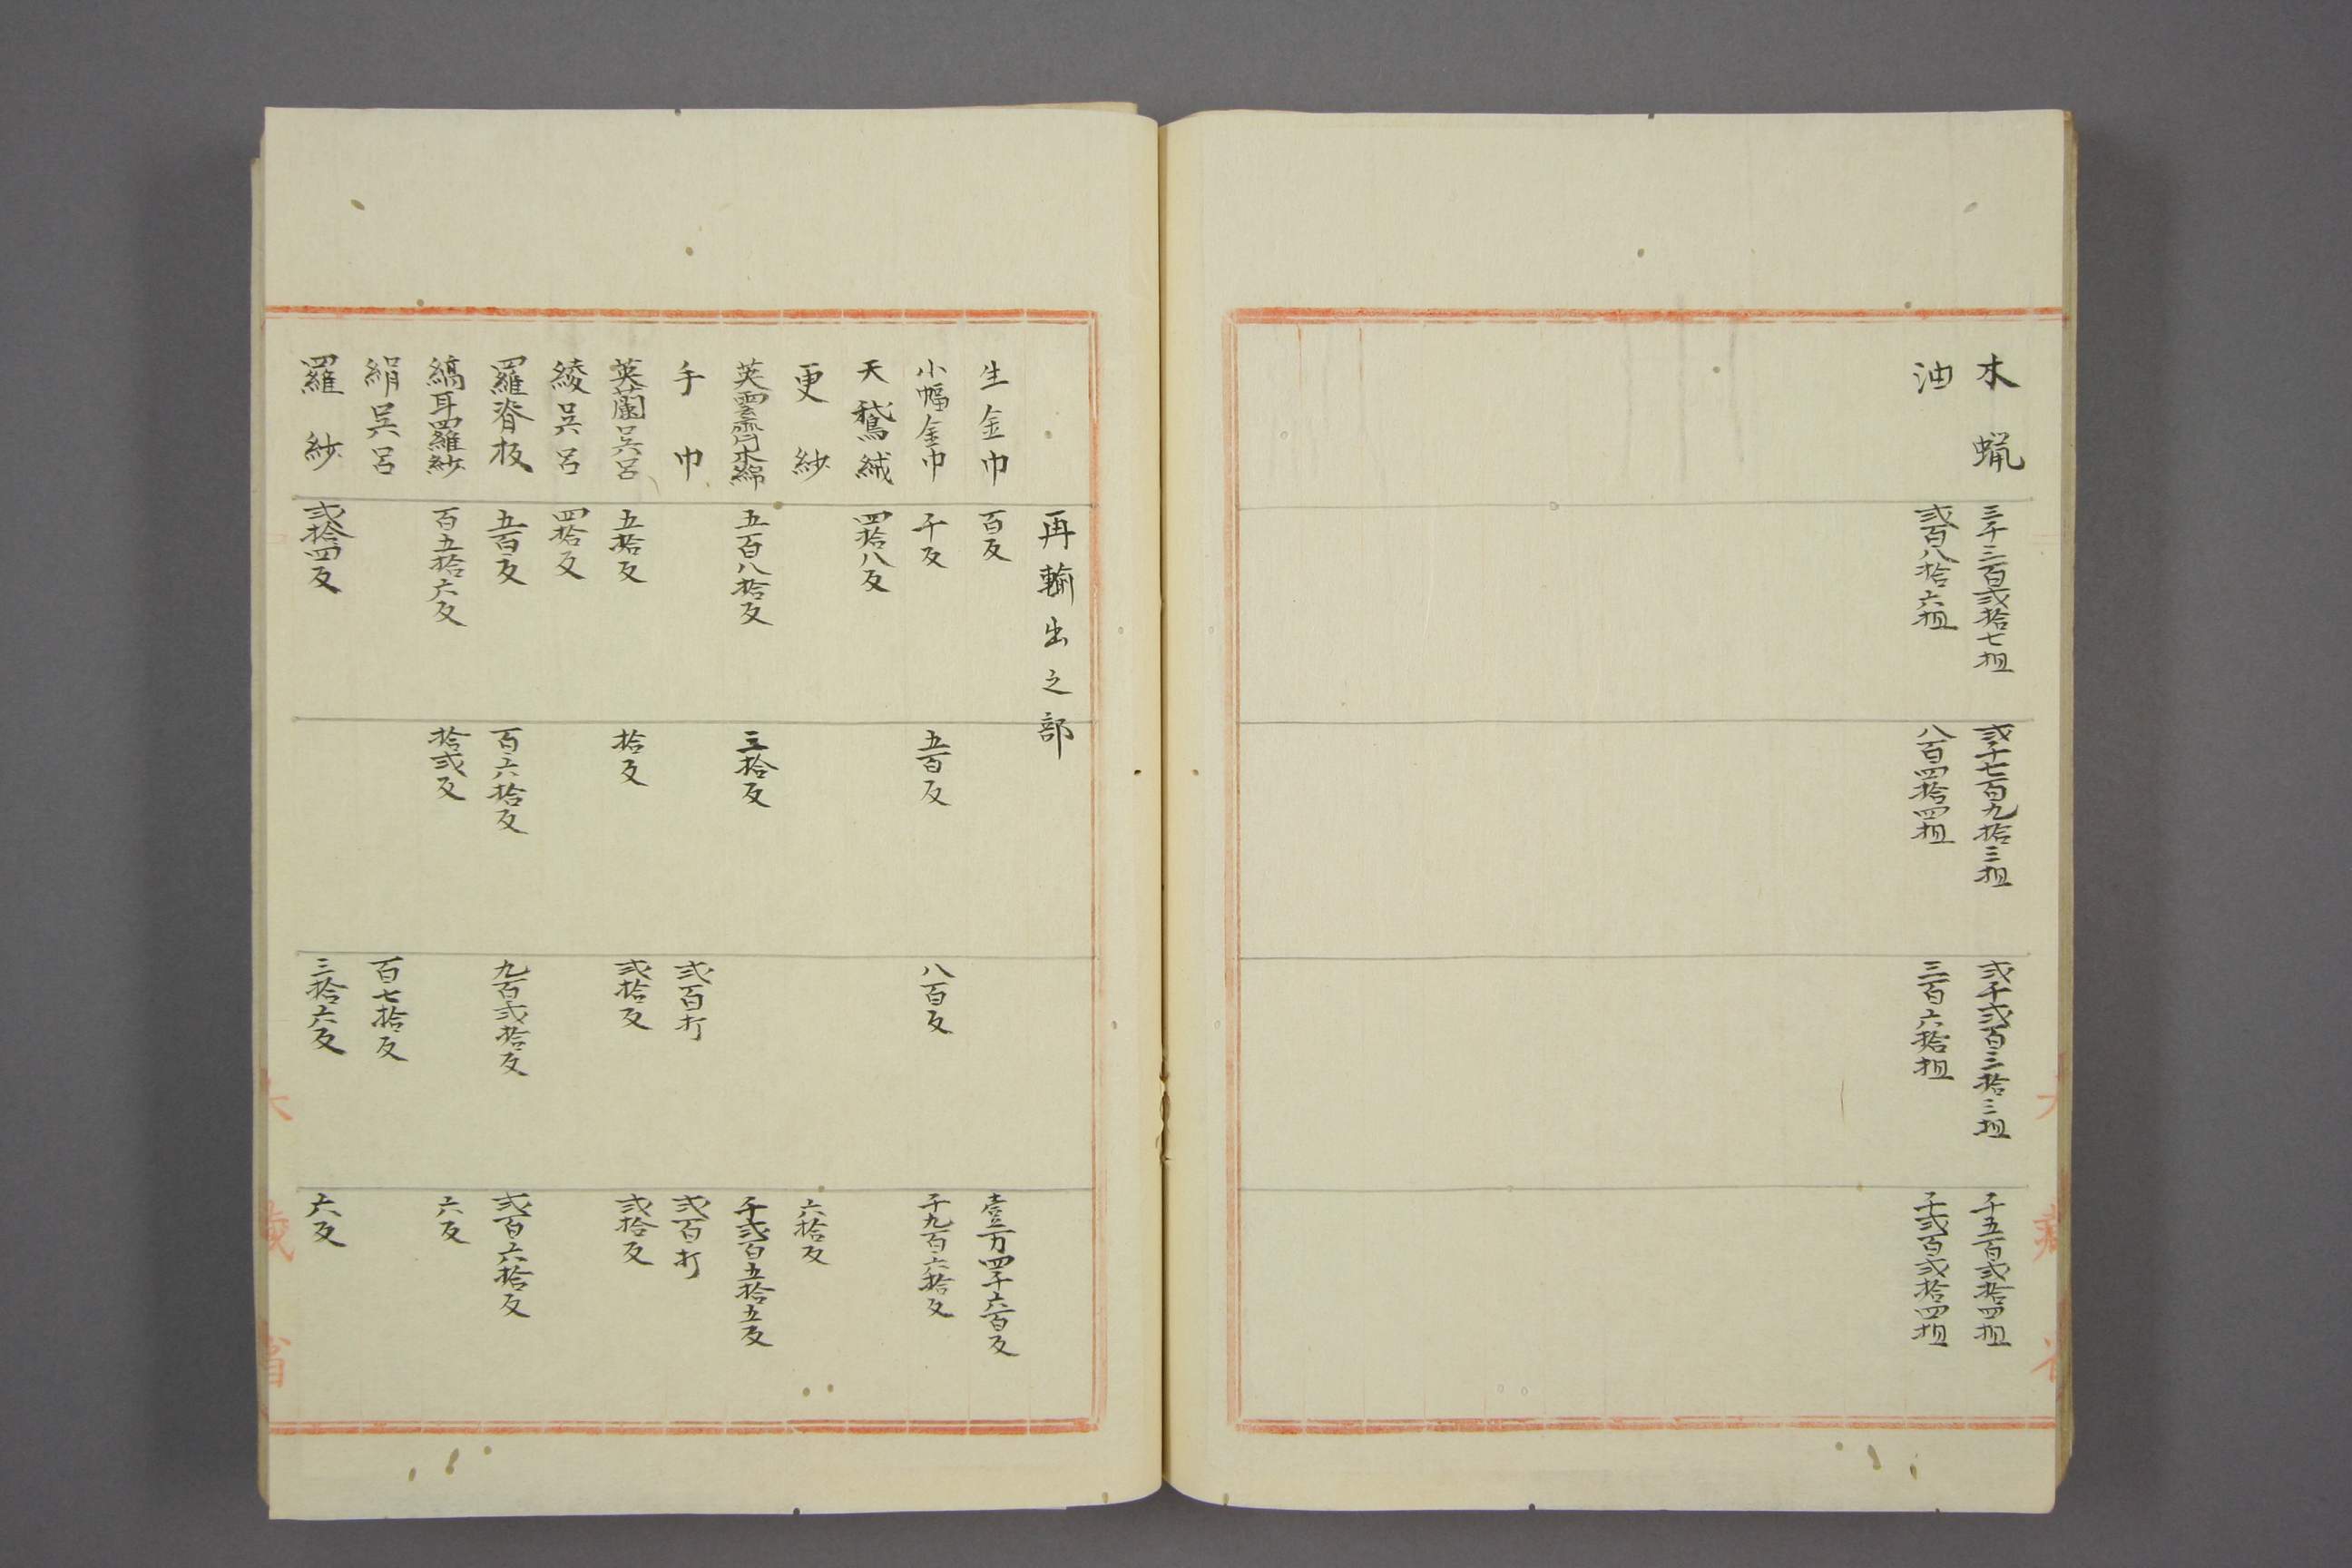 木蝋 三千三百弐拾七担 弐千七百九拾三担 弐千弐百三拾三担 千五百弐拾四担
油 弐百八拾六担 八百四拾四担 三百六拾担 千弐百弐拾四担
再輸出之部
生金巾 百反 壹万四千六百反
小幅金巾 千反 五百反 八百反 千九百六拾反
天鵞絨 四拾八反
更紗 六拾反
英雲斎木綿 五百八拾反 三拾反 千弐百五拾五反
手巾 弐百打 弐百打
英蘭呉呂 五拾反 拾反 弐拾反 弐拾反
綾呉呂 四拾反
羅脊板 五百反 百六拾反 九百弐拾反 弐百六拾反
縞耳羅紗 百五拾六反 拾弐反 六反
絹呉呂 百七拾反
羅紗 弐拾四反 三拾六反 六反